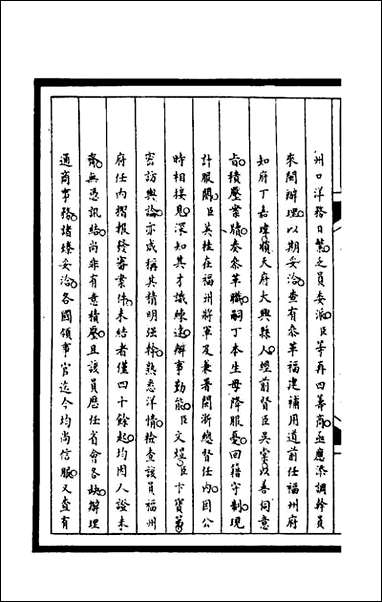 州口洋務日繁乏員委派臣等再四籌商亟應添調幹員
來閩辦理以期妥洽查有叅革福建補用道前任福州府
知府丁嘉瑋順天府大興縣人經前督臣吳棠以善伺意
旨積壓案牘奏叅革職嗣丁本生母降服憂回籍守制現
計服闋臣英桂在福州將軍及兼署閩浙總督任內因公
時相接見深知其才識練達辦事勤能臣文煜臣卞寶第
密訪輿論亦咸稱其精明強幹熟悉洋情檢查該員福州
府任內摺報發審案件未結者僅四十餘起均因人證未
齊無憑訊結尚非有意積壓且該員歷任省會各缺辦理
通商事務諸臻妥洽各國領事官迄今均尚信服又查有